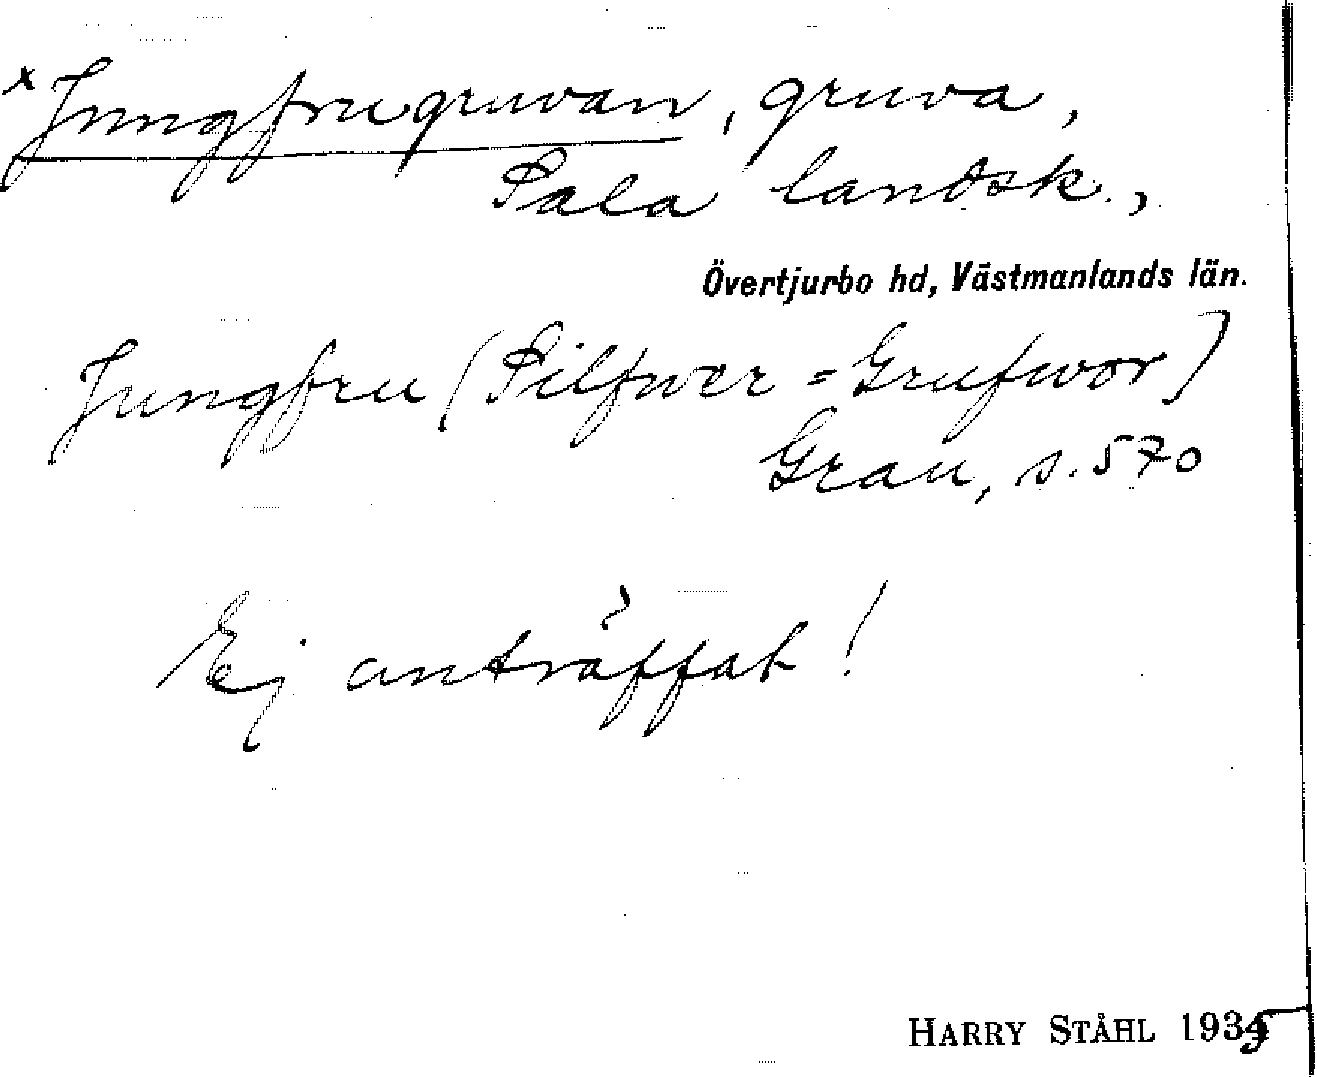 x Jungfrugruvan, gruva,
Sala landsk.,
Övertjurbo hd, Västmanlands län.
Jungfru (Silfwer=Grufwor)
Grau, s. 570
Ej anträffat!
HARRY STÅHL 1935